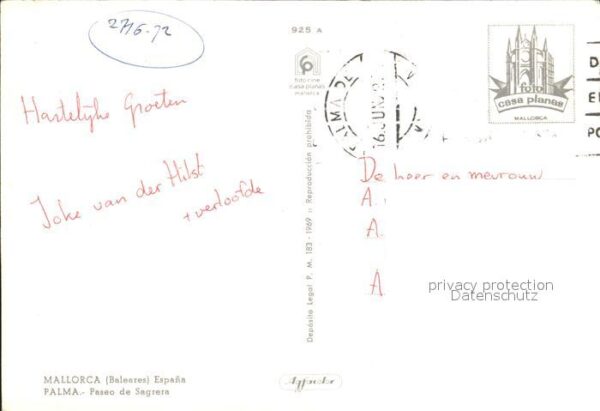 27/6-72
925 A
foto cine
casa planas
mallorca
foto
casa planas
MALLORCA
PALMA DE
16 JUN
Hartelijke Groeten
Joke van der Hilst
+ verloofde
De heer en mevrouw
A.
A
A
privacy protection
Datenschutz
Depósito Legal P. M. 183 - 1969 :: Reproducción prohibida
MALLORCA (Baleares) España
PALMA.- Paseo de Sagrera